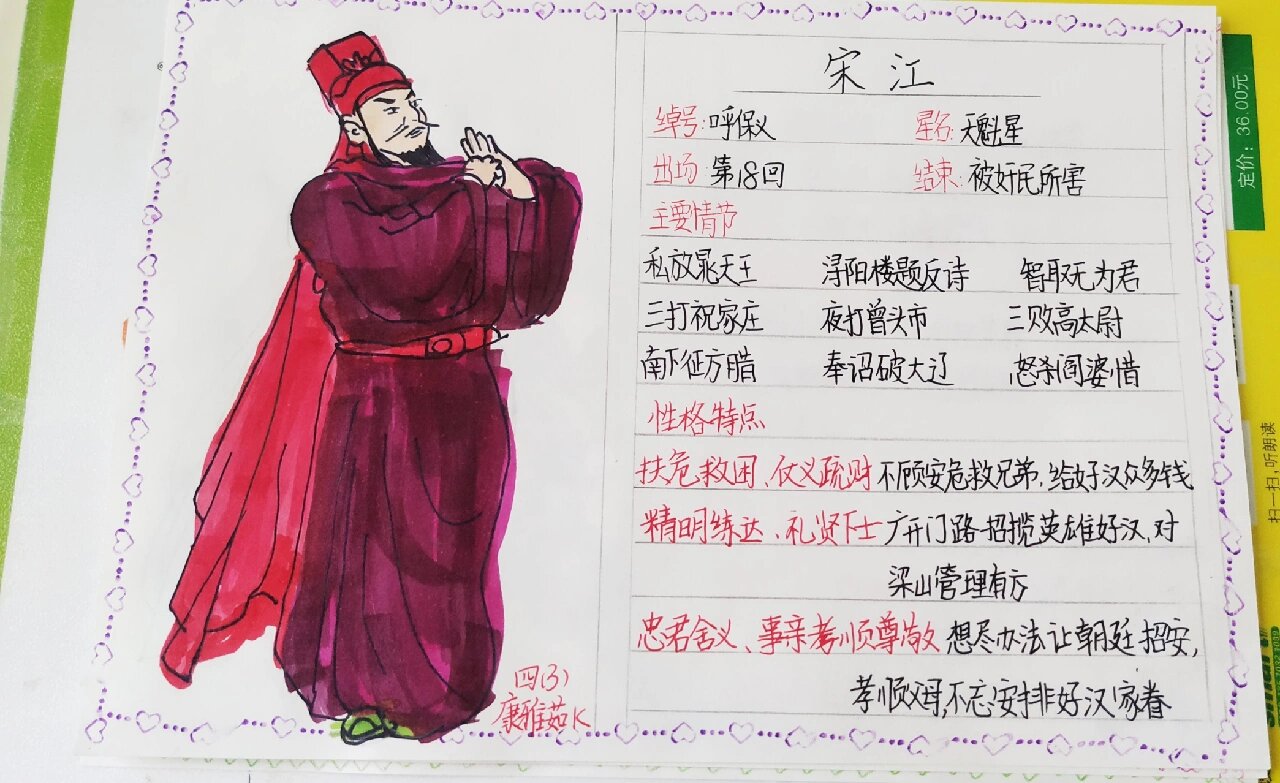 宋江
绰号:呼保义 星名:天魁星
出场 第18回 结束:被奸民所害
主要情节
私放晁天王 浔阳楼题反诗 智取无为君
三打祝家庄 夜打曾头市 三败高太尉
南下征方腊 奉诏破大辽 怒杀阎婆惜
性格特点
扶危救困、仗义疏财 不顾安危救兄弟,给好汉众多钱
精明练达、礼贤下士 广开门路招揽英雄好汉,对
梁山管理有方
忠君舍义、事亲孝顺尊敬 想尽办法让朝廷招安,
孝顺父母,不忘安排好汉家眷
四(3)
康雅茹K
定价:36.00元
扫一扫,听朗读